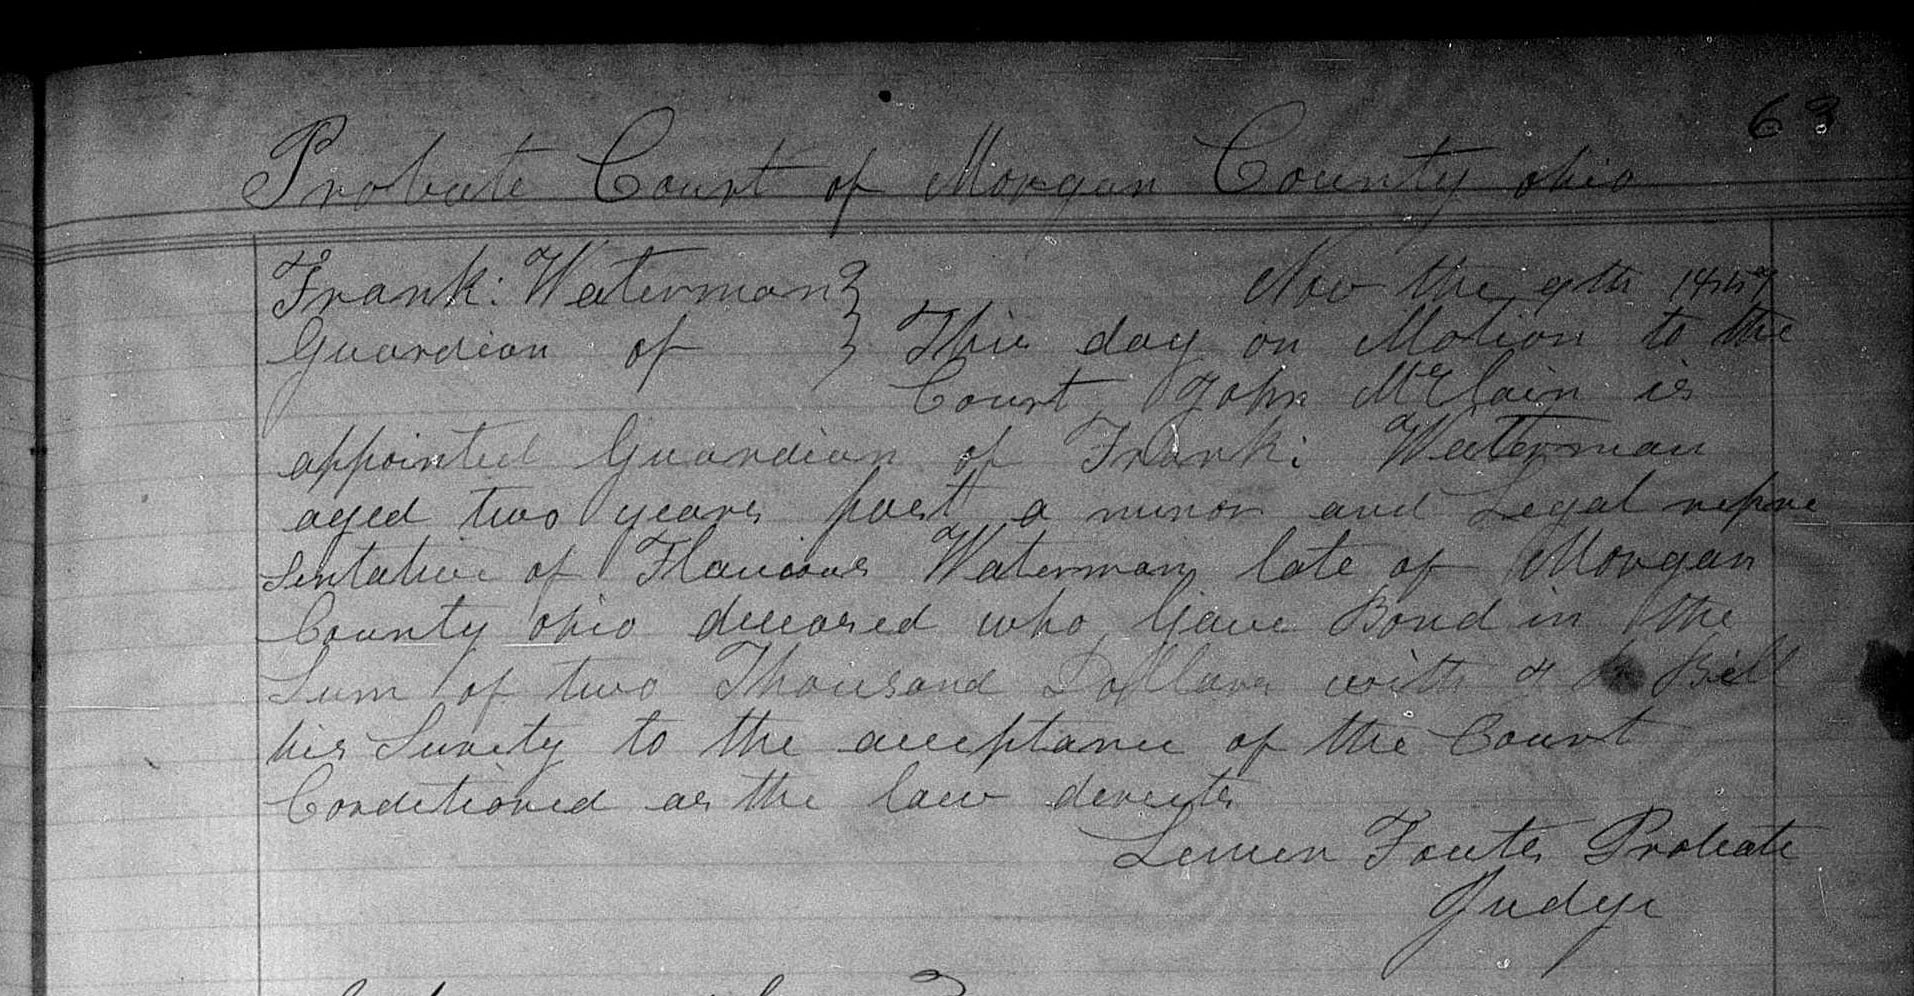 63
Probate Court of Morgan County ohio
Frank: Waterman }
Nov the 9th
Guardian of } This day on Motion to the
Court John McClain is
appointed Guardian of Frank: Waterman
aged two years past a minor and Legal repre
sentative of Flavious Waterman late of Morgan
County ohio deceased who Gave Bond in the
Sum of two Thousand Dollars with Bell
his Surety to the acceptance of the Court
Conditioned as the law directs
Fouts Probate
Judge